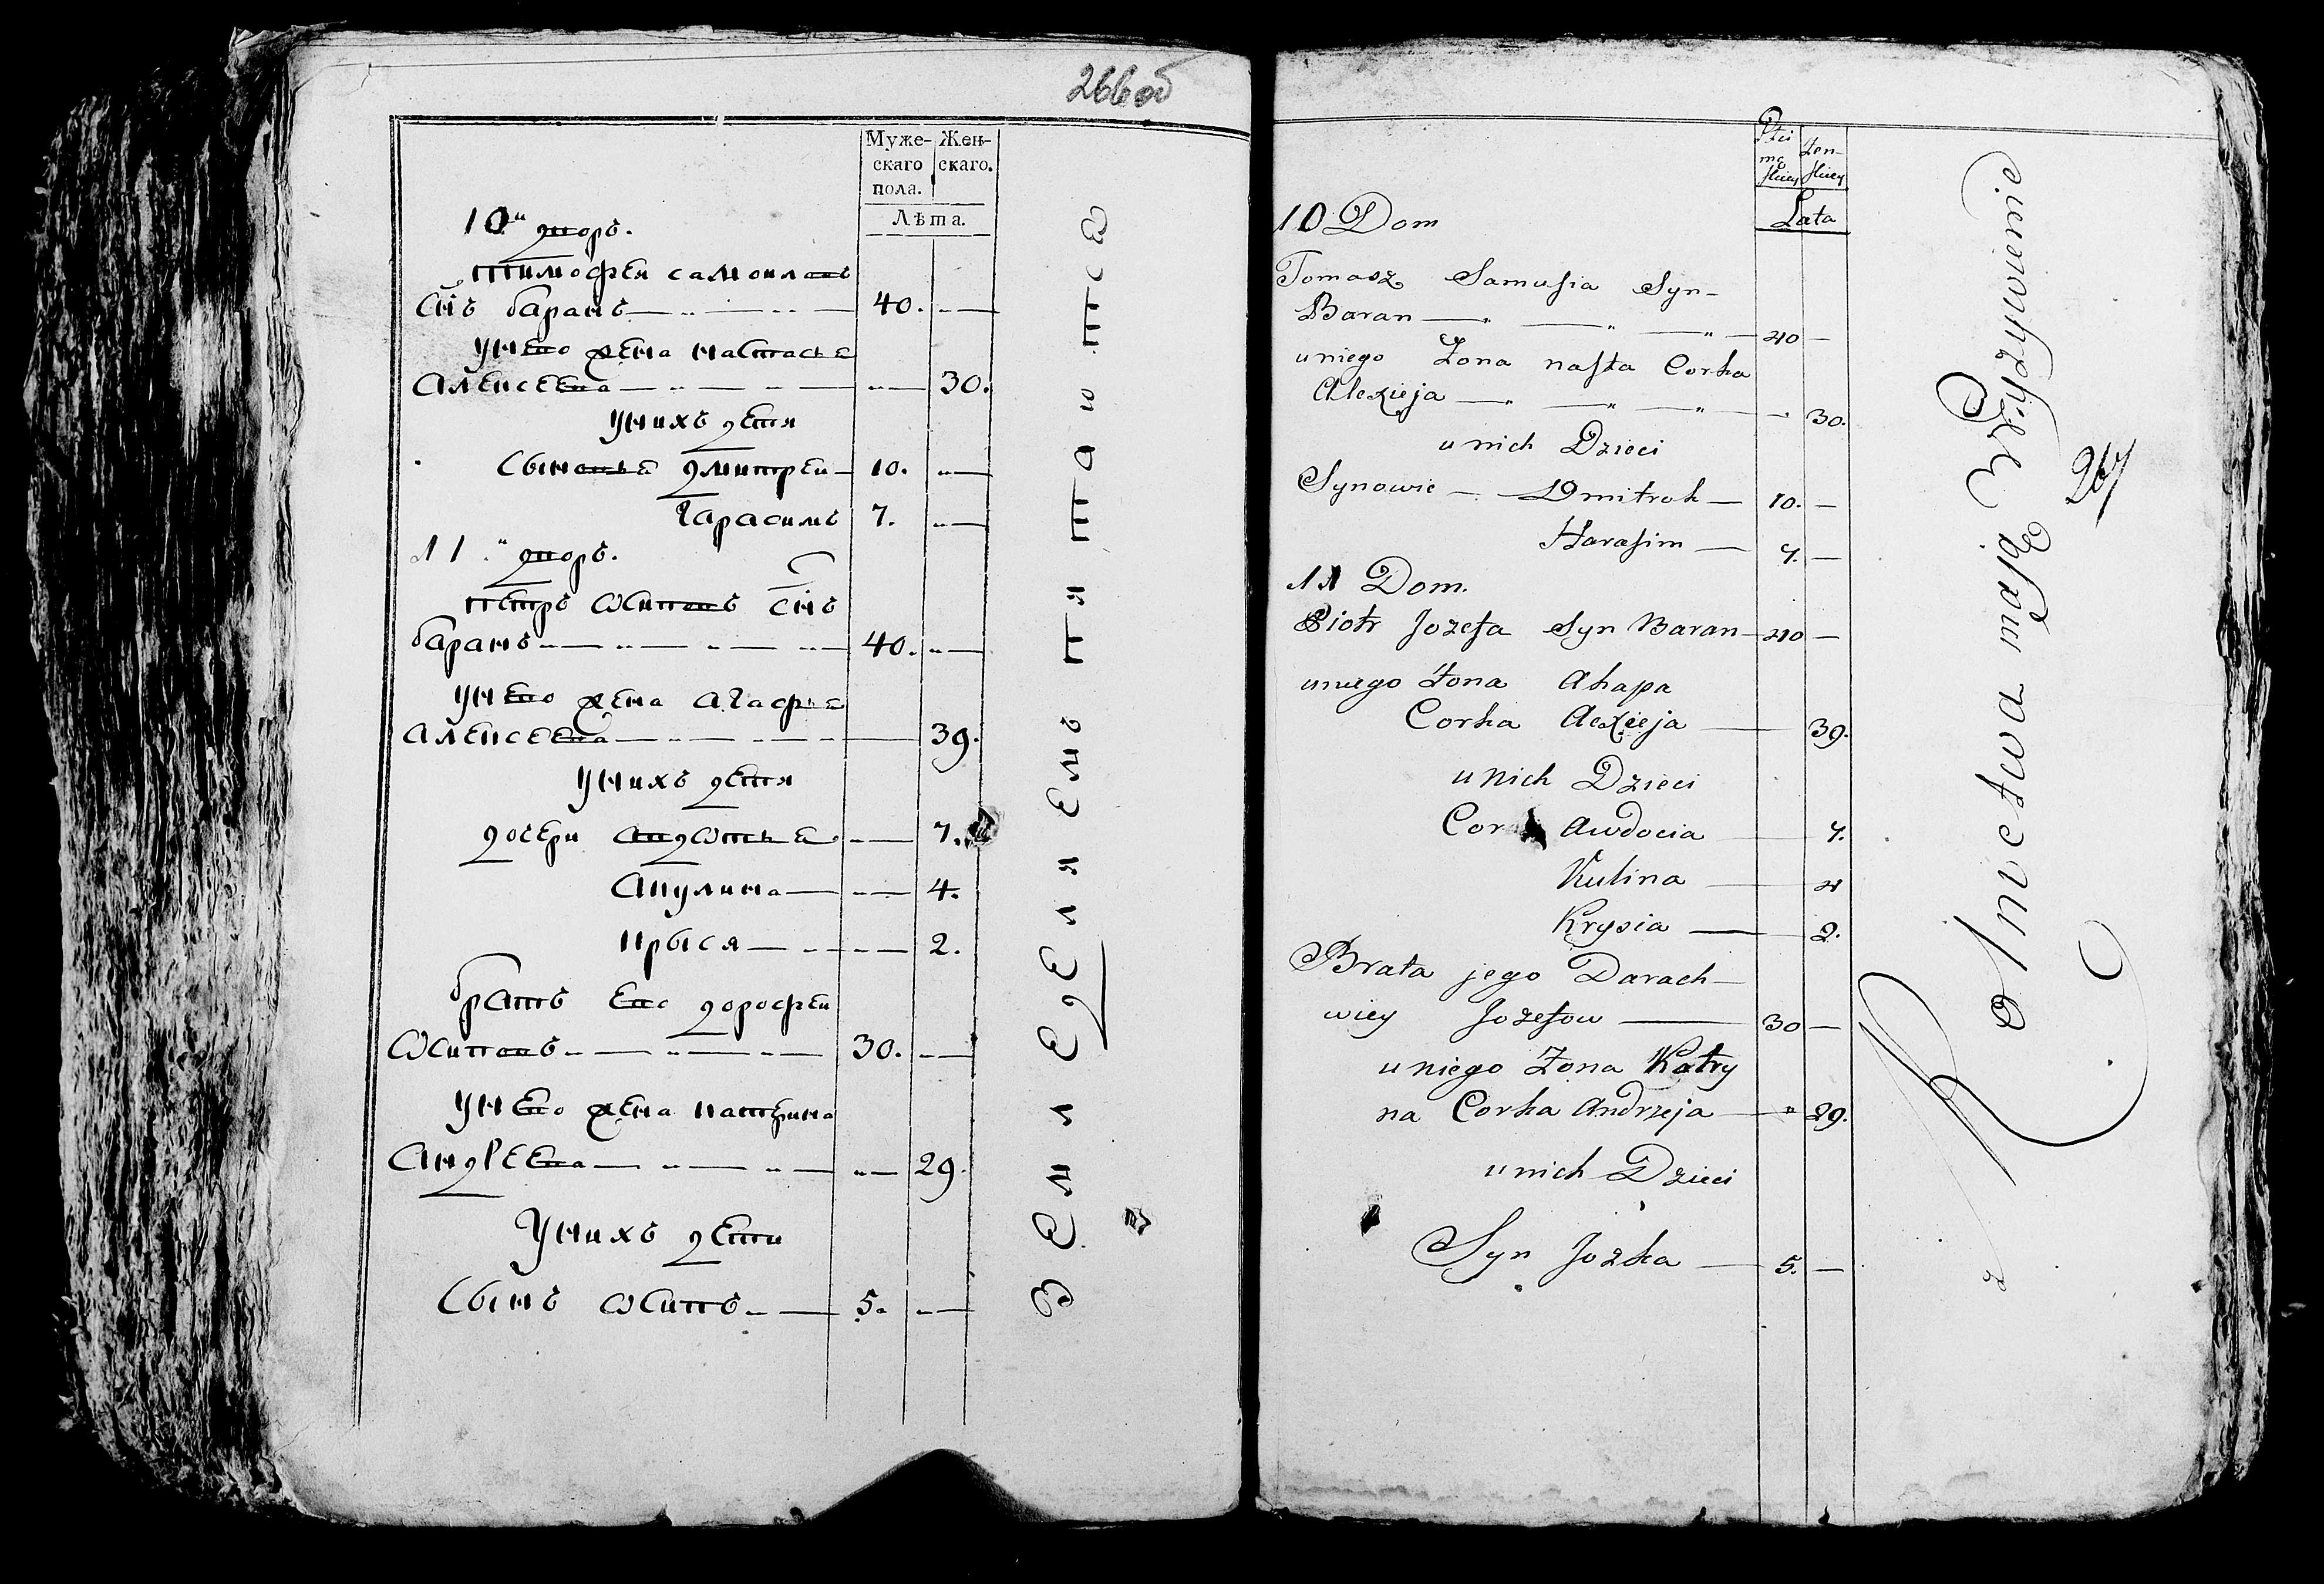 266об
Муже- Жен-
скаго скаго.
пола.
Лѣта.
10.й дворъ.
Тимофеи самоиловъ
Снъ баранъ 40.
Унево жена настасья
Алексеева 30.
Унихъ детя
Сыновья дмитреи 10.
Гарасимъ 7.
11.й дворъ.
петръ Ѡсиповъ Снъ
баранъ 40.
Унево жена агафья
Алексеева 39.
Унихъ детя
дочери авдѡтья 7.
Акулина 4.
Крыся 2.
братъ ево дорофеи
Ѡсиповъ 30.
Унево жена катерина
Андреева 29.
Унихъ дети
Сынъ Ѡсипъ 5.
Земледелиемъ питаютсе
Płci
mę żen-
skiey skiey
Lata
10 Dom
Tomasz Samusia Syn
Baran 40
u niego Żona nasta Corka
Alexieja 30.
u nich Dzieci
Synowie Dmitrok 10.
Harasim 7.
11 Dom.
Piotr Jozefa Syn Baran 40
u niego Żona Ahapa
Corka Alexieja 39.
u nich Dzieci
Cor Awdocia 7.
Kulina 4
Krysia 2.
Brata jego Darach
wiey Jozefow 30
u niego Żona Katry
na Corka Andrzeja 29.
u nich Dzieci
Syn Jozka 5.
z Rolnictwa mają Wyżywienie
267